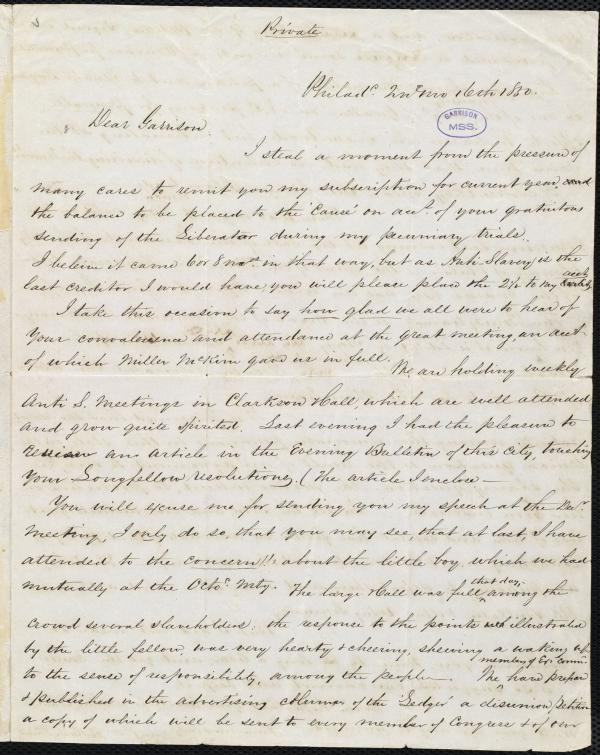 Private
Philada. 2nd mo 16th 1850.
GARRISON
MSS.
Dear Garrison.
I steal a moment from the pressure of
many cares to remit you my subscription for current year, and
the balance to be placed to the 'Cause' on acct. of your gratuitous
sending of the Liberator during my pecuniary trials.
I beleive it came 6 or 8 mos. in that way, but as Anti Slavery is the
last creditor I would have, you will please place the 2½ to my
I take this occasion to say how glad we all were to hear of
your convalesence and attendance at the great meeting, an acct
of which Miller McKim gave us in full.
We are holding weekly
Anti S. Meetings in Clarkson Hall, which are well attended
and grow quite spirited. Last evening I had the pleasure to
an article in the Evening Bulletin of this City, touching
your Longfellow resolutions, (The article I enclose —
You will excuse me for sending you my speech at the Decr.
meeting, I only do so, that you may see, that at last, I have
attended to the concern!!! about the little boy, which we had
mutually at the Octo. Mtg. The large Hall was full that day, among the
crowd several slaveholders; the response to the points illustrated
by the little fellow was very hearty & cheering, shewing a waking up
to the sense of responsibility, among the people — We members of Ex Comm. have prepared
& published in the advertising columns of the 'Ledger' a disunion Petition
a copy of which will be sent to every member of Congress & of our